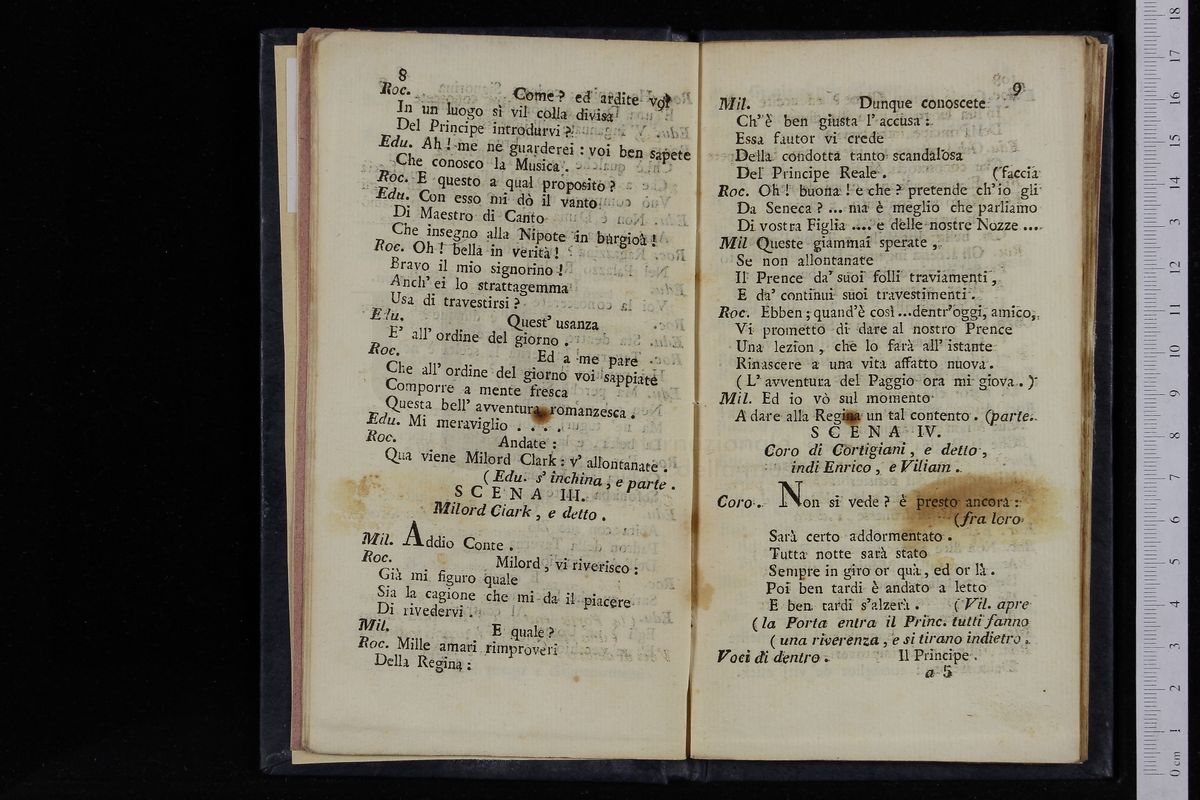 8
Roc. Come? ed ardite voi
In un luogo sì vil colla divisa
Del Principe introdurvi?
Edu. Ah! me ne guarderei: voi ben sapete
Che conosco la Musica.
Roc. E questo a qual proposito?
Edu. Con esso mi dò il vanto
Di Maestro di Canto
Che insegno alla Nipote in burgioà!
Roc. Oh! bella in verità!
Bravo il mio signorino!
Anch' ei lo strattagemma
Usa di travestirsi?
Edu. Quest' usanza
E' all' ordine del giorno.
Roc. Ed a me pare
Che all' ordine del giorno voi sappiate
Comporre a mente fresca
Questa bell' avventura romanzesca.
Edu. Mi meraviglio . . . .
Roc. Andate:
Qua viene Milord Clark: v' allontanate.
(Edu. s' inchina, e parte.
SCENA III.
Milord Clark, e detto.
Mil. Addio Conte.
Roc. Milord, vi riverisco:
Già mi figuro quale
Sia la cagione che mi da il piacere
Di rivedervi.
Mil. E quale?
Roc. Mille amari rimproveri
Della Regina:
9
Mil. Dunque conoscete
Ch' è ben giusta l' accusa:
Essa fautor vi crede
Della condotta tanto scandalosa
Del Principe Reale. (faccia
Roc. Oh! buona! e che? pretende ch' io gli
Da Seneca? ... ma è meglio che parliamo
Di vostra Figlia .... e delle nostre Nozze ....
Mil Queste giammai sperate,
Se non allontanate
Il Prence da' suoi folli traviamenti,
E da' continui suoi travestimenti.
Roc. Ebben; quand'è così ...dentr'oggi, amico,
Vi prometto di dare al nostro Prence
Una lezion, che lo farà all' istante
Rinascere a una vita affatto nuova.
(L' avventura del Paggio ora mi giova.)
Mil. Ed io vò sul momento
A dare alla Regina un tal contento. (parte.
SCENA IV.
Coro di Cortigiani, e detto,
indi Enrico, e Viliam.
Coro. Non si vede? è presto ancora:
(fra loro
Sarà certo addormentato.
Tutta notte sarà stato
Sempre in giro or quà, ed or là.
Poi ben tardi è andato a letto
E ben tardi s'alzerà. (Vil. apre
(la Porta entra il Princ. tutti fanno
(una riverenza, e si tirano indietro.
Voci di dentro. Il Principe.
a 5
0 cm 1 2 3 4 5 6 7 8 9 10 11 12 13 14 15 16 17 18